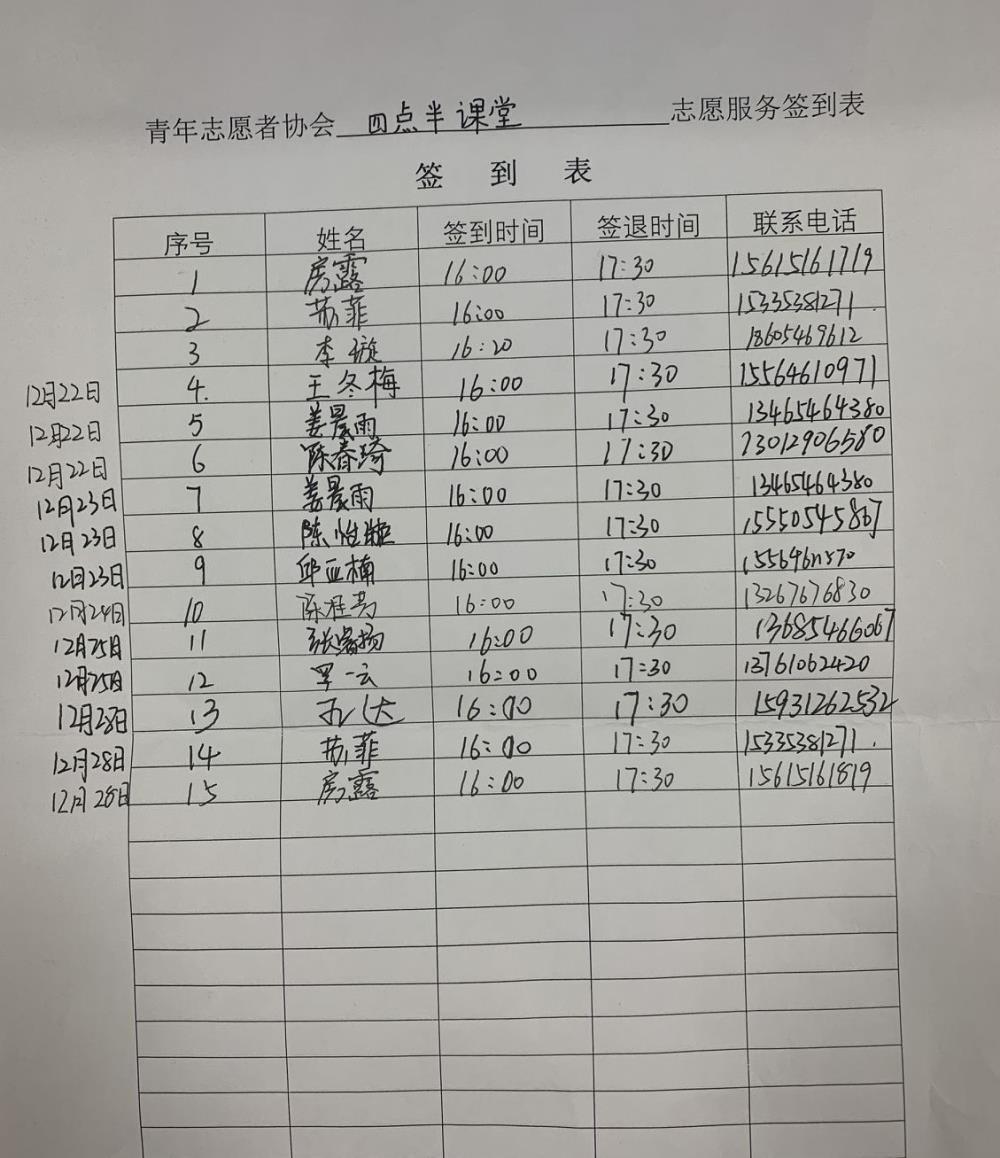 青年志愿者协会 四点半课堂 志愿服务签到表
签 到 表
序号 姓名 签到时间 签退时间 联系电话
1 房露 16:00 17:30 15615161719
2 苏菲 16:00 17:30 15335381271.
3 李璇 16:20 17:30 18605469612
12月22日 4. 王冬梅 16:00 17:30 15564610971
12月22日 5 姜晨雨 16:00 17:30 13465464380
12月22日 6 陈春琦 16:00 17:30 73012906580
12月23日 7 姜晨雨 16:00 17:30 13465464380
12月23日 8 陈怡 16:00 17:30 15550545867
12月23日 9 邱亚楠 16:00 17:30
12月24日 10 16:00 17:30 13267676830
12月25日 11 16:00 17:30 13685466067
12月25日 12 16:00 17:30 13761062420
12月28日 13 孔达 16:00 17:30 15931262532
12月28日 14 苏菲 16:00 17:30 15335381271.
12月28日 15 房露 16:00 17:30 15615161819